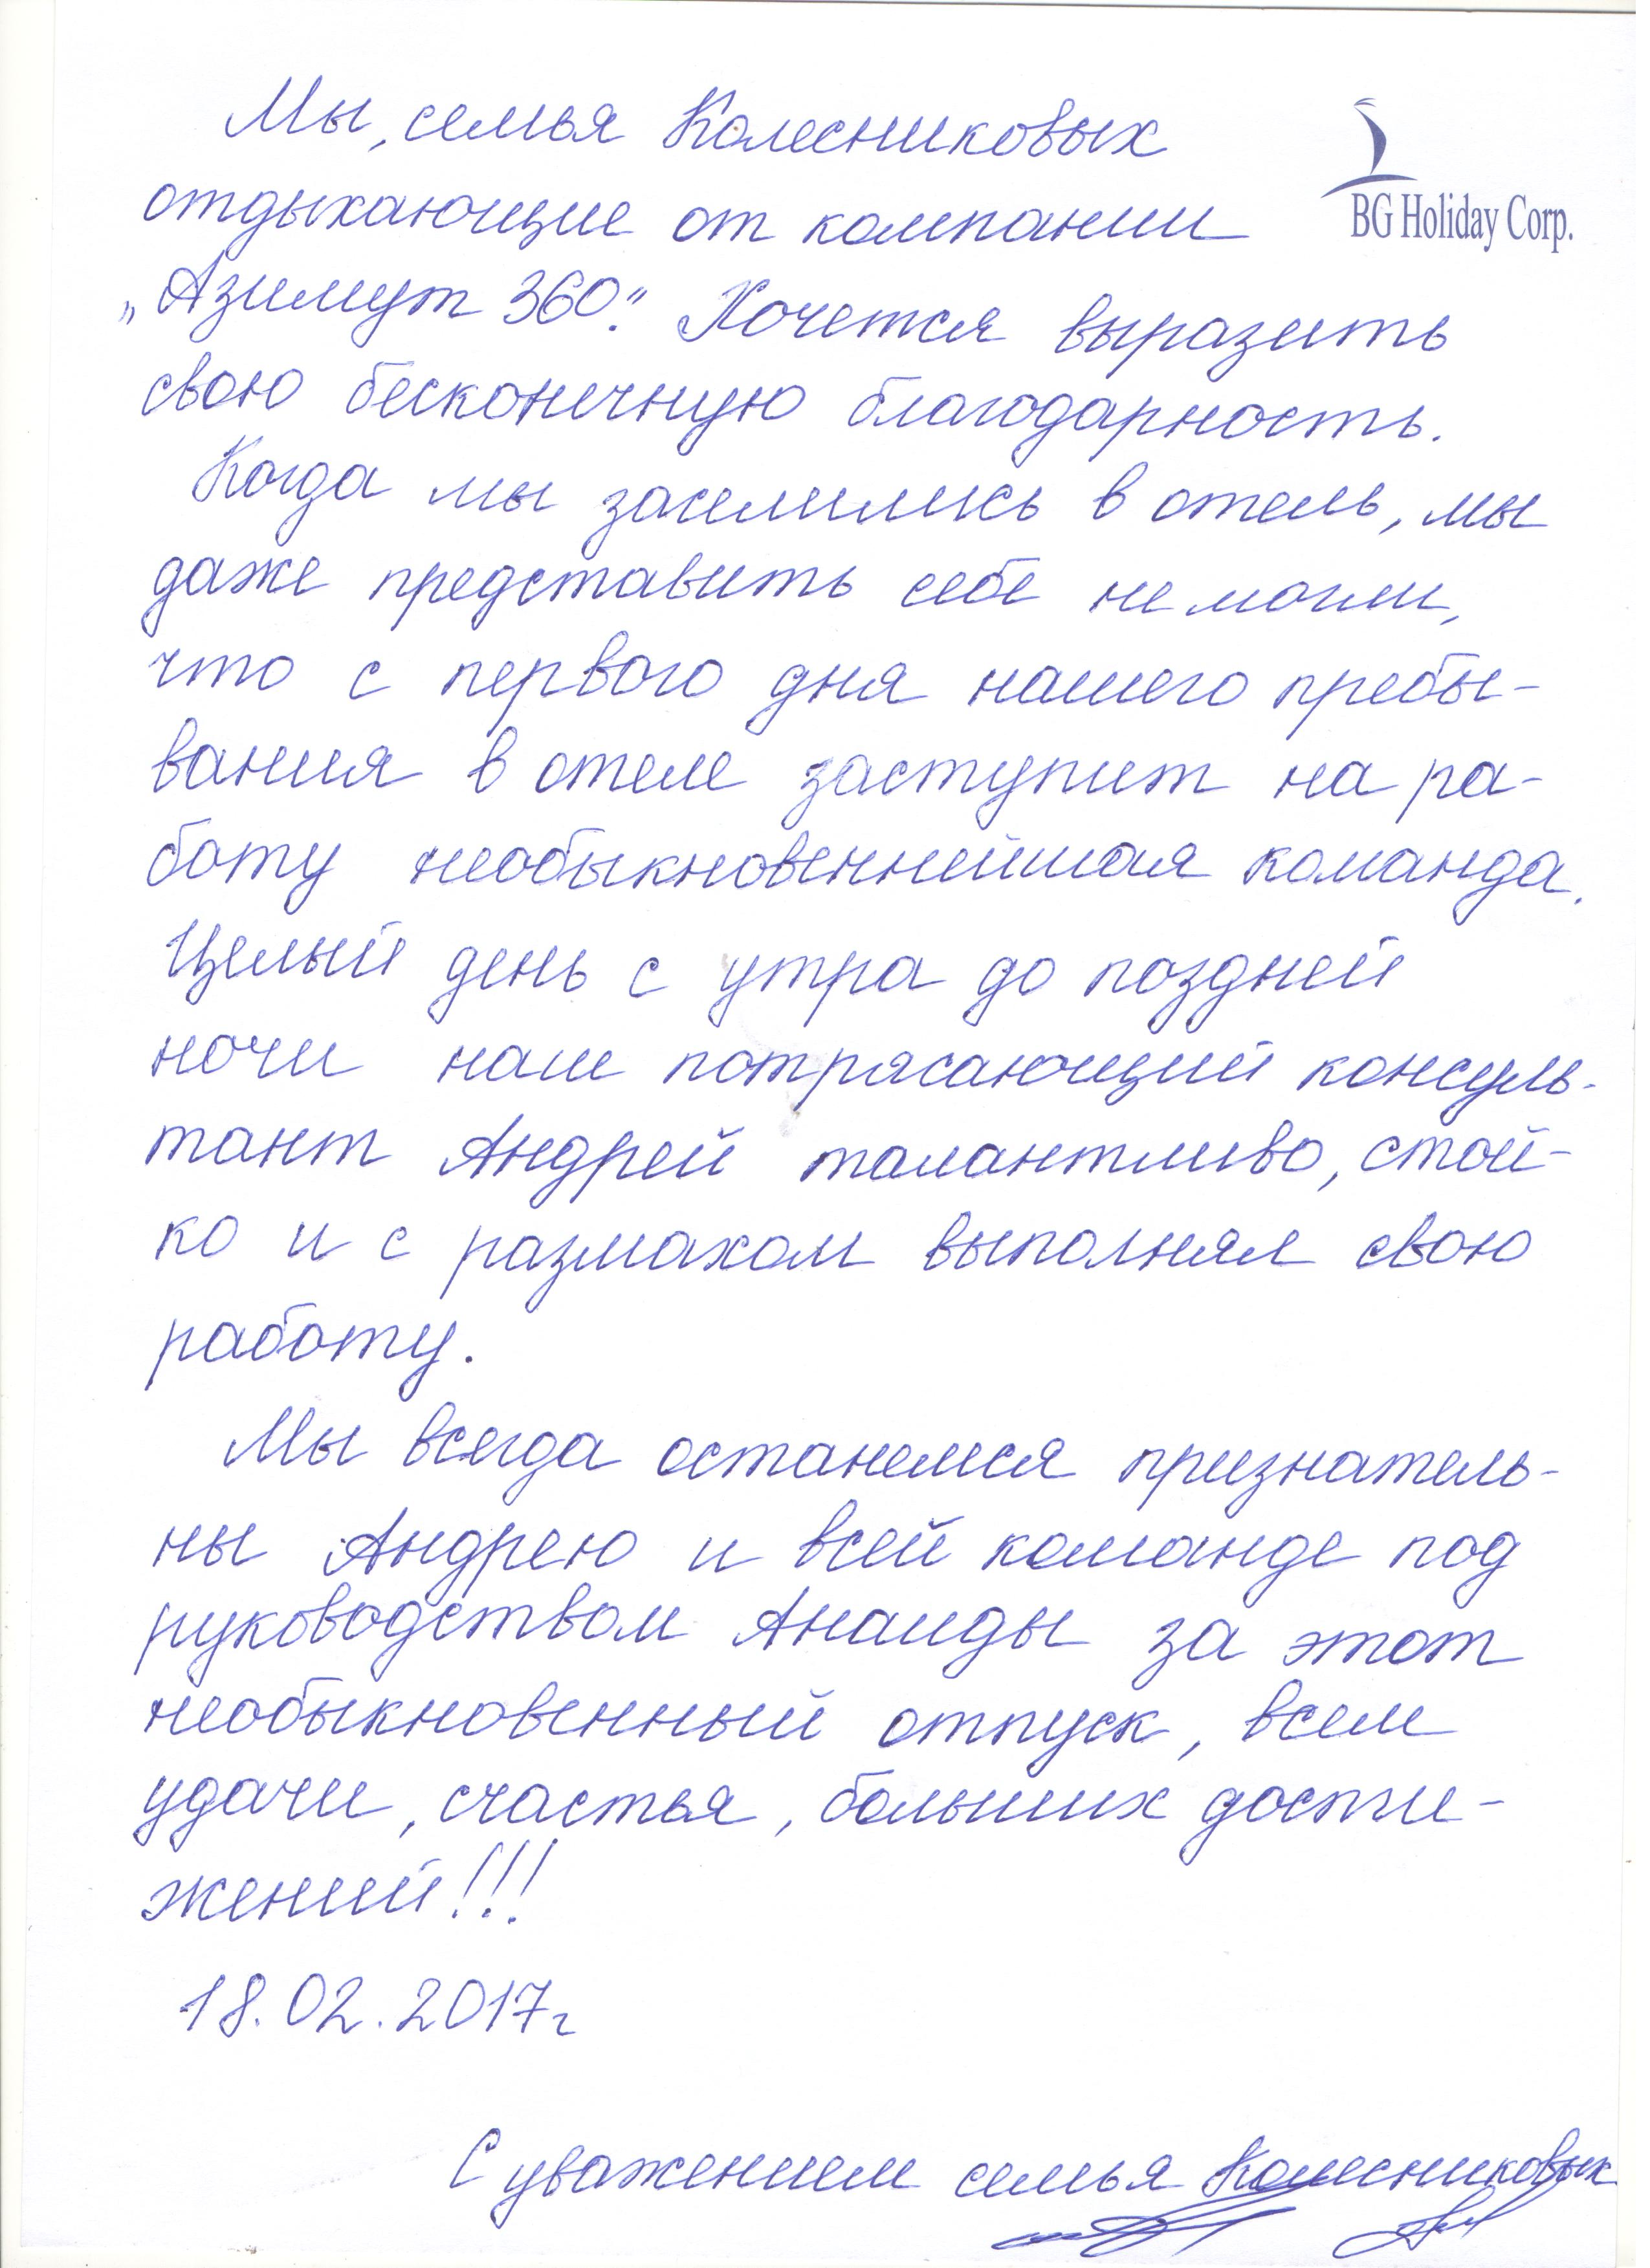 Мы, семья Колесниковых
BG Holiday Corp.
отдыхающие от компании
„Азимут 360“. Хочется выразить
свою бесконечную благодарность.
Когда мы заселились в отель, мы
даже представить себе не могли,
что с первого дня нашего пребы-
вания в отеле заступит на ра-
боту необыкновеннейшая команда.
Целый день с утра до поздней
ночи наш потрясающий консуль-
тант Андрей талантливо, стой-
ко и с размахом выполнял свою
работу.
Мы всегда останемся признатель-
ны Андрею и всей команде под
руководством Анаиды за этот
необыкновенный отпуск, всем
удачи, счастья, больших дости-
жений!!!
18.02.2017г
С уважением семья Колесниковых